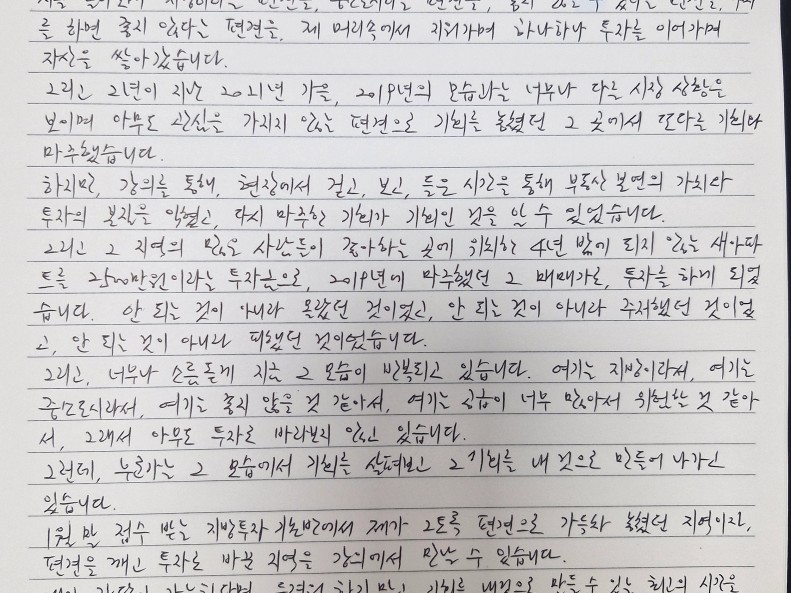 를 하면 좋지 않다는 편견을, 제 머리속에서 지워가며 하나하나 투자를 이어가며
자산을 쌓아갔습니다.
그리고 2년이 지난 2021년 가을, 2019년의 모습과는 너무나 다른 시장 상황을
보이며 아무도 관심을 가지지 않는 편견으로 기회를 놓쳤던 그 곳에서 또다른 기회를
마주했습니다.
하지만, 강의를 통해, 현장에서 걷고, 보고, 들은 시간을 통해 부동산 본연의 가치와
투자의 본질을 익혔고, 다시 마주한 기회가 기회인 것을 알 수 있었습니다.
그리고 그 지역의 많은 사람들이 좋아하는 곳에 위치한 4년 밖에 되지 않는 새아파
트를 2500만원이라는 투자금으로, 2019년에 마주했던 그 매매가로, 투자를 하게 되었
습니다. 안 되는 것이 아니라 몰랐던 것이었고, 안 되는 것이 아니라 주저했던 것이었
고, 안 되는 것이 아니라 피했던 것이었습니다.
그리고, 너무나 소름돋게 지금 그 모습이 반복되고 있습니다. 여기는 지방이라서, 여기는
중소도시라서, 여기는 좋지 않을 것 같아서, 여기는 공급이 너무 많아서 위험할 것 같아
서, 그래서 아무도 투자로 바라보지 않고 있습니다.
그런데, 누군가는 그 모습에서 기회를 살펴보고 그 기회를 내 것으로 만들어 나가고
있습니다.
1월 말 접수 받는 지방투자 기초반에서 제가 그토록 편견으로 가득차 놓쳤던 지역이자,
편견을 깨고 투자로 바꾼 지역을 강의에서 만날 수 있습니다.
기회를 내것으로 만들 수 있는 최고의 시간을